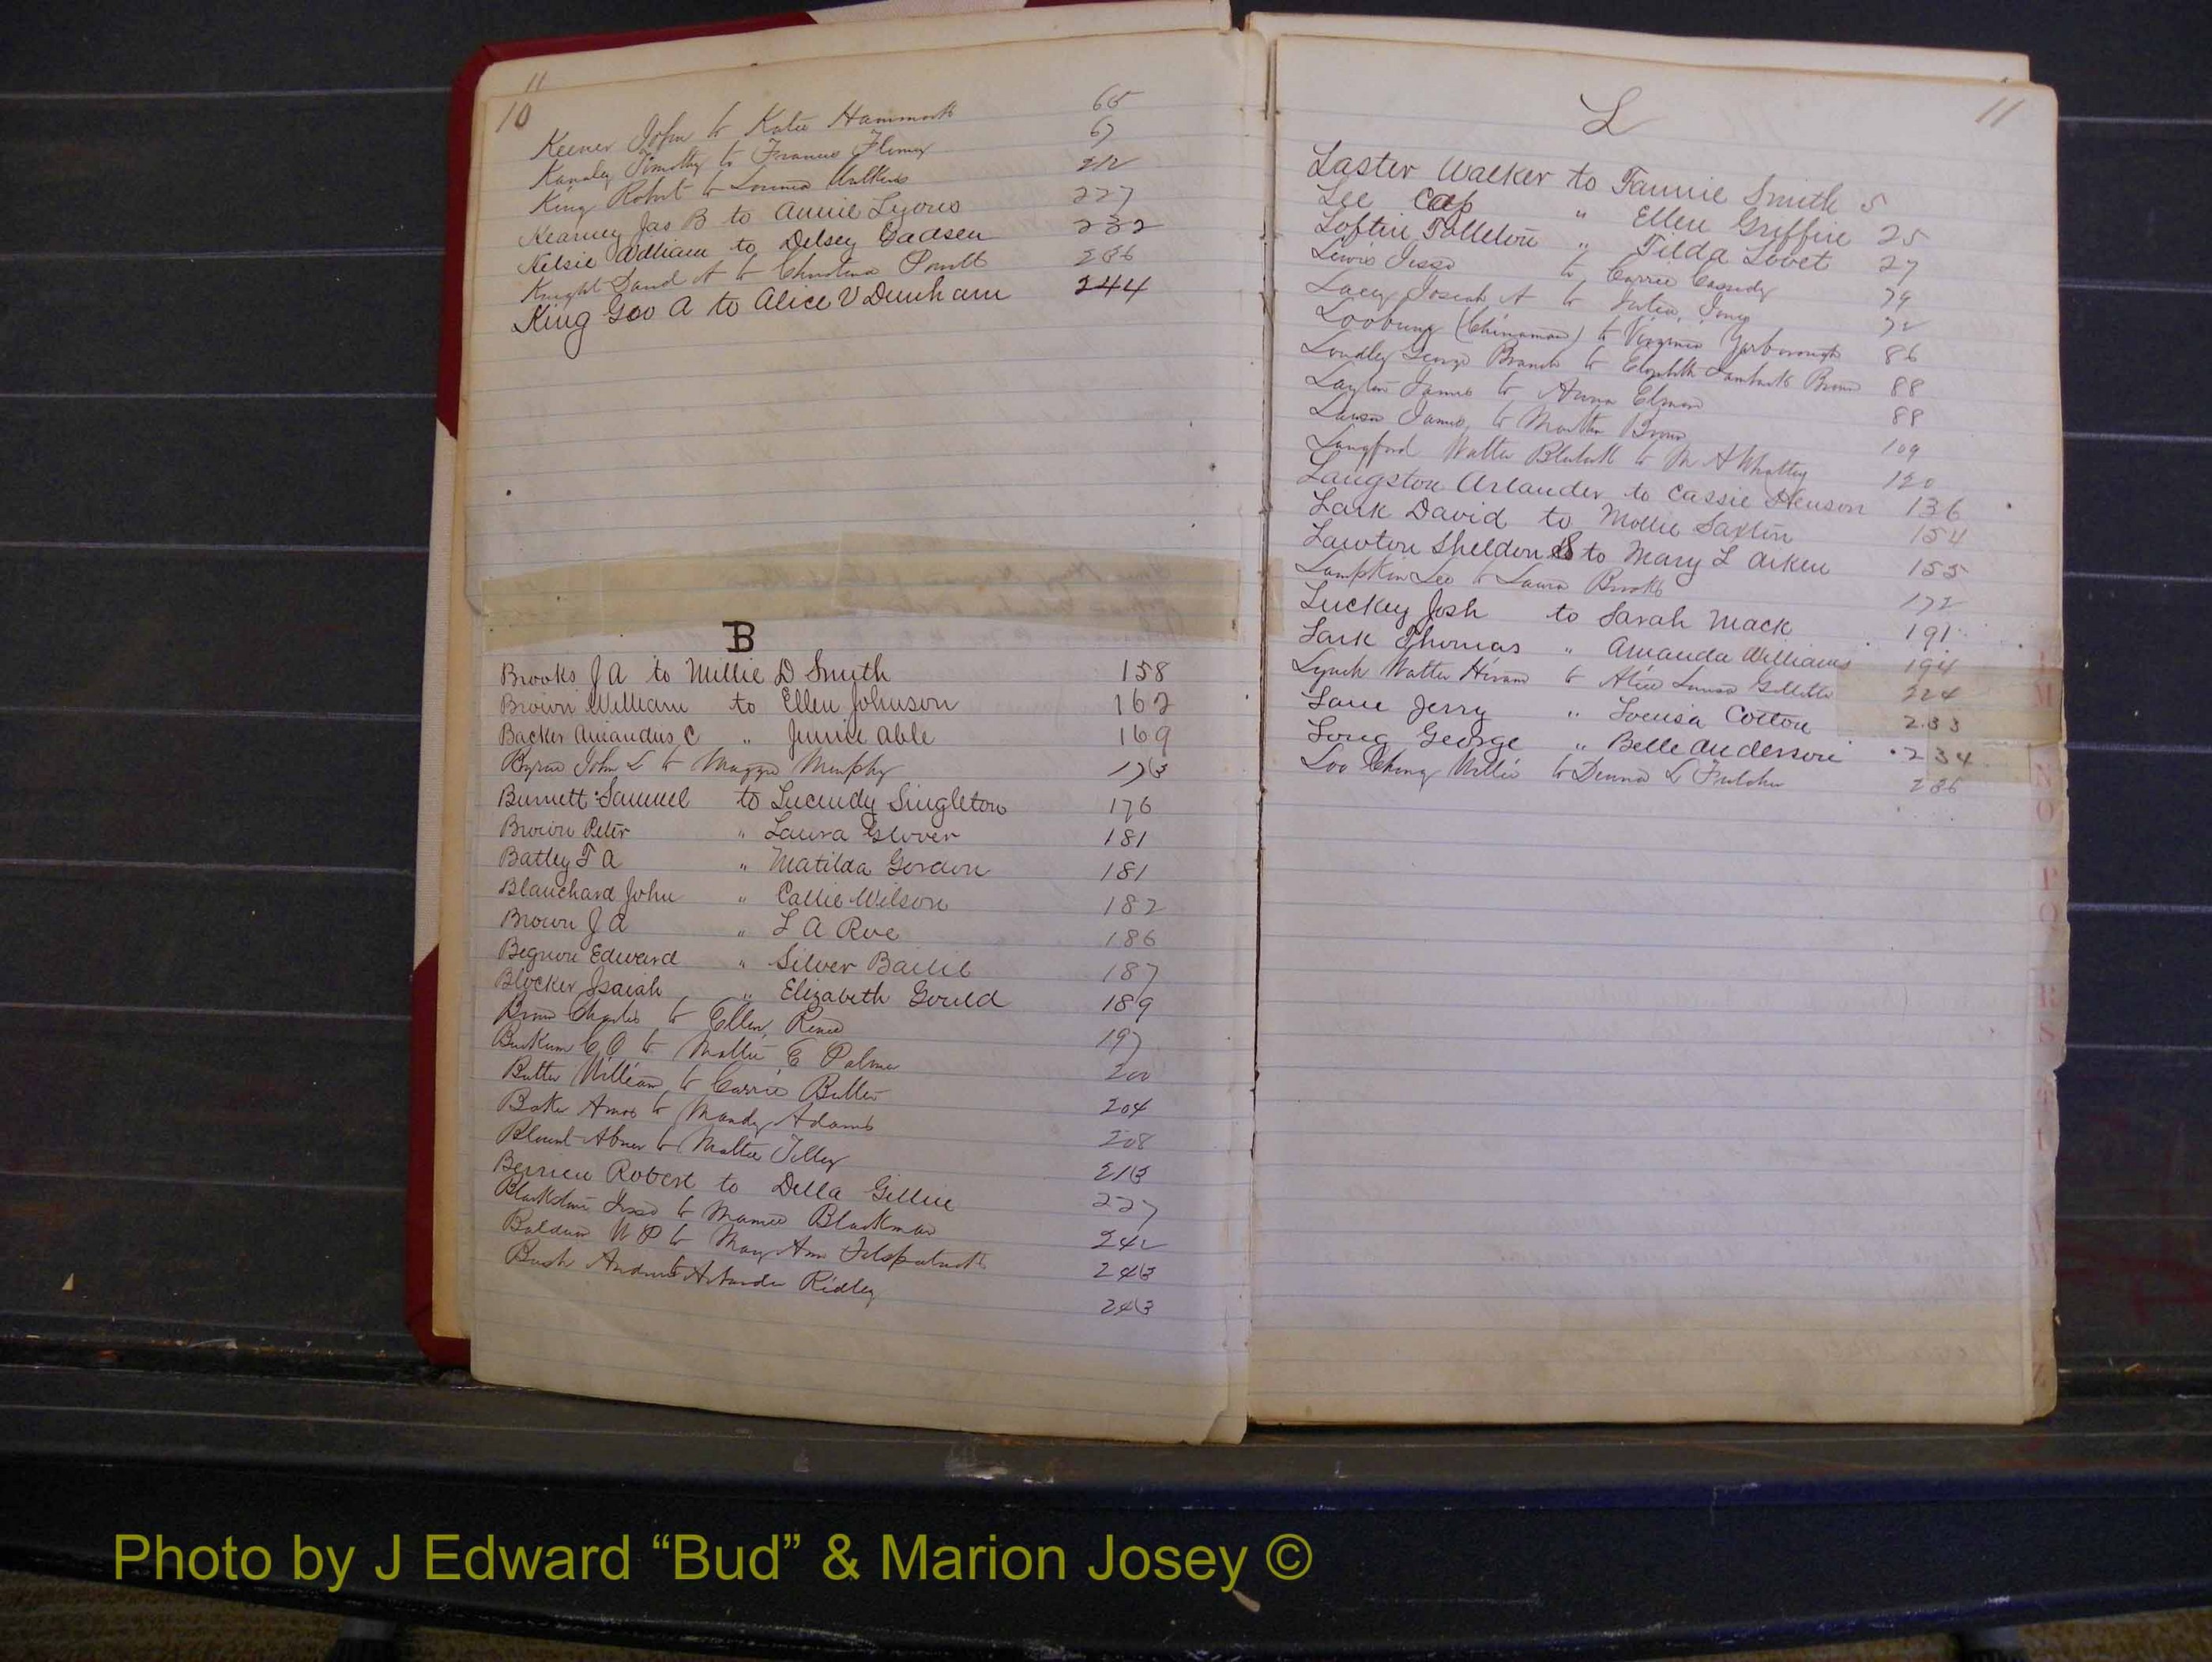 11
10
Keener John to Katie Hammock 65
Kannley Timothy to Frances 67
King Robert to 212
Kearney Jas B to Annie Lyons 227
Kelsie William to Delsey Gadsen 232
Knight David A to Christina 236
King Geo A to Alice V Dunham 244
B
Brooks J A to Millie D Smith 158
Brown William to Ellen Johnson 162
Backer Amandus C " Jennie Able 169
Byrne John L to Maggie Murphy 173
Burnett Samuel to Lucindy Singleton 176
Brown Peter " Laura Glover 181
Batley T A " Matilda Gordon 181
Blanchard John " Callie Wilson 182
Brown J A " L A Roe 186
Bignon Edward " Silver Bailie 187
Blocker Isaiah " Elizabeth Gould 189
Brown Charles to Ellen 197
C O to Mattie E Palmer 200
Butler William to Carrie Butler 204
Baker Amos to Mandy Adams 208
Blount Abner to Mattie Tilley 213
Berrien Robert to Della Gillie 227
Jesse to Mamie Blackman 242
Baldwin W P to May Ann 243
Bush Andrew to Ridley 243
11
L
Laster Walker to Fannie Smith 5
Lee Cap " Ellen Griffin 25
Loftin " Tilda Lovet 27
Lewis Jesse to Carrie Cassidy 79
Lacey Josiah A to Julia Jones 72
Loobung (Chinaman) to Virginia Yarborough 86
George Branch to Elizabeth Brown 88
Layton James to Anna 88
James to Martha Brown 109
Langford Walter to M A Whatley 120
Langston Arlander to Cassie Henson 136
Lark David to Mollie Saxton 154
Lawton Sheldon S to Mary L Aiken 155
Lampkin Leo to Laura Brooks 172
Luckey Josh to Sarah Mack 191
Lark Thomas " Amanda Williams 194
Lynch Walter Hiram to Alice Gillette 224
Lane Jerry " Louisa Cotton 233
Long George " Belle Anderson 234
Loo Chong Willie to L Fulcher 236
M
N
O
P
Q
R
S
T
Photo by J Edward “Bud” & Marion Josey ©